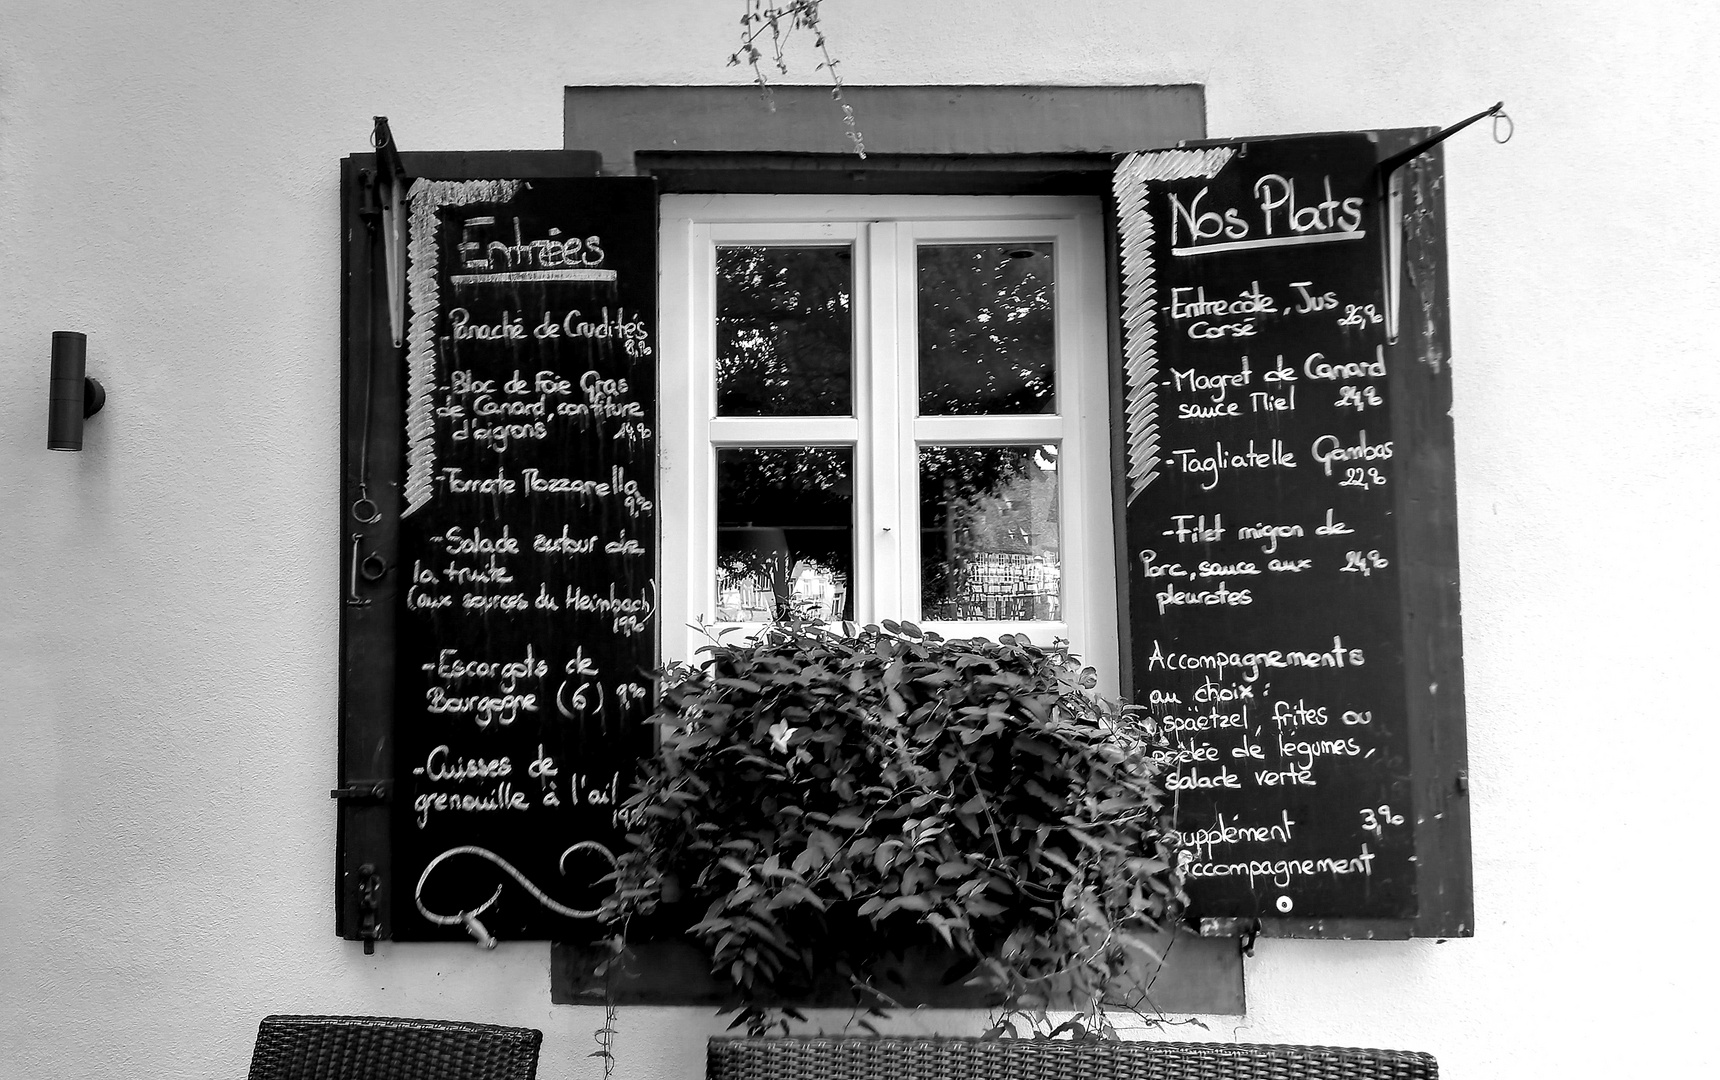 Entrées
-Panaché de Crudités
8,90
-Bloc de Foie Gras
de Canard, confiture
d'oignons 14,90
-Tomate Mozzarella
9,90
-Salade autour de
la truite
(aux sources du Heimbach)
19,90
-Escargots de
Bourgogne (6) 9,90
-Cuisses de
grenouille à l'ail
Nos Plats
-Entrecôte, Jus
Corsé 26,90
-Magret de Canard
sauce Miel 24,90
-Tagliatelle Gambas
22,90
-Filet mignon de
Porc, sauce aux 24,90
pleurotes
Accompagnements
au choix :
späetzel, frites ou
poêlée de légumes,
salade verte
supplément 3,90
accompagnement